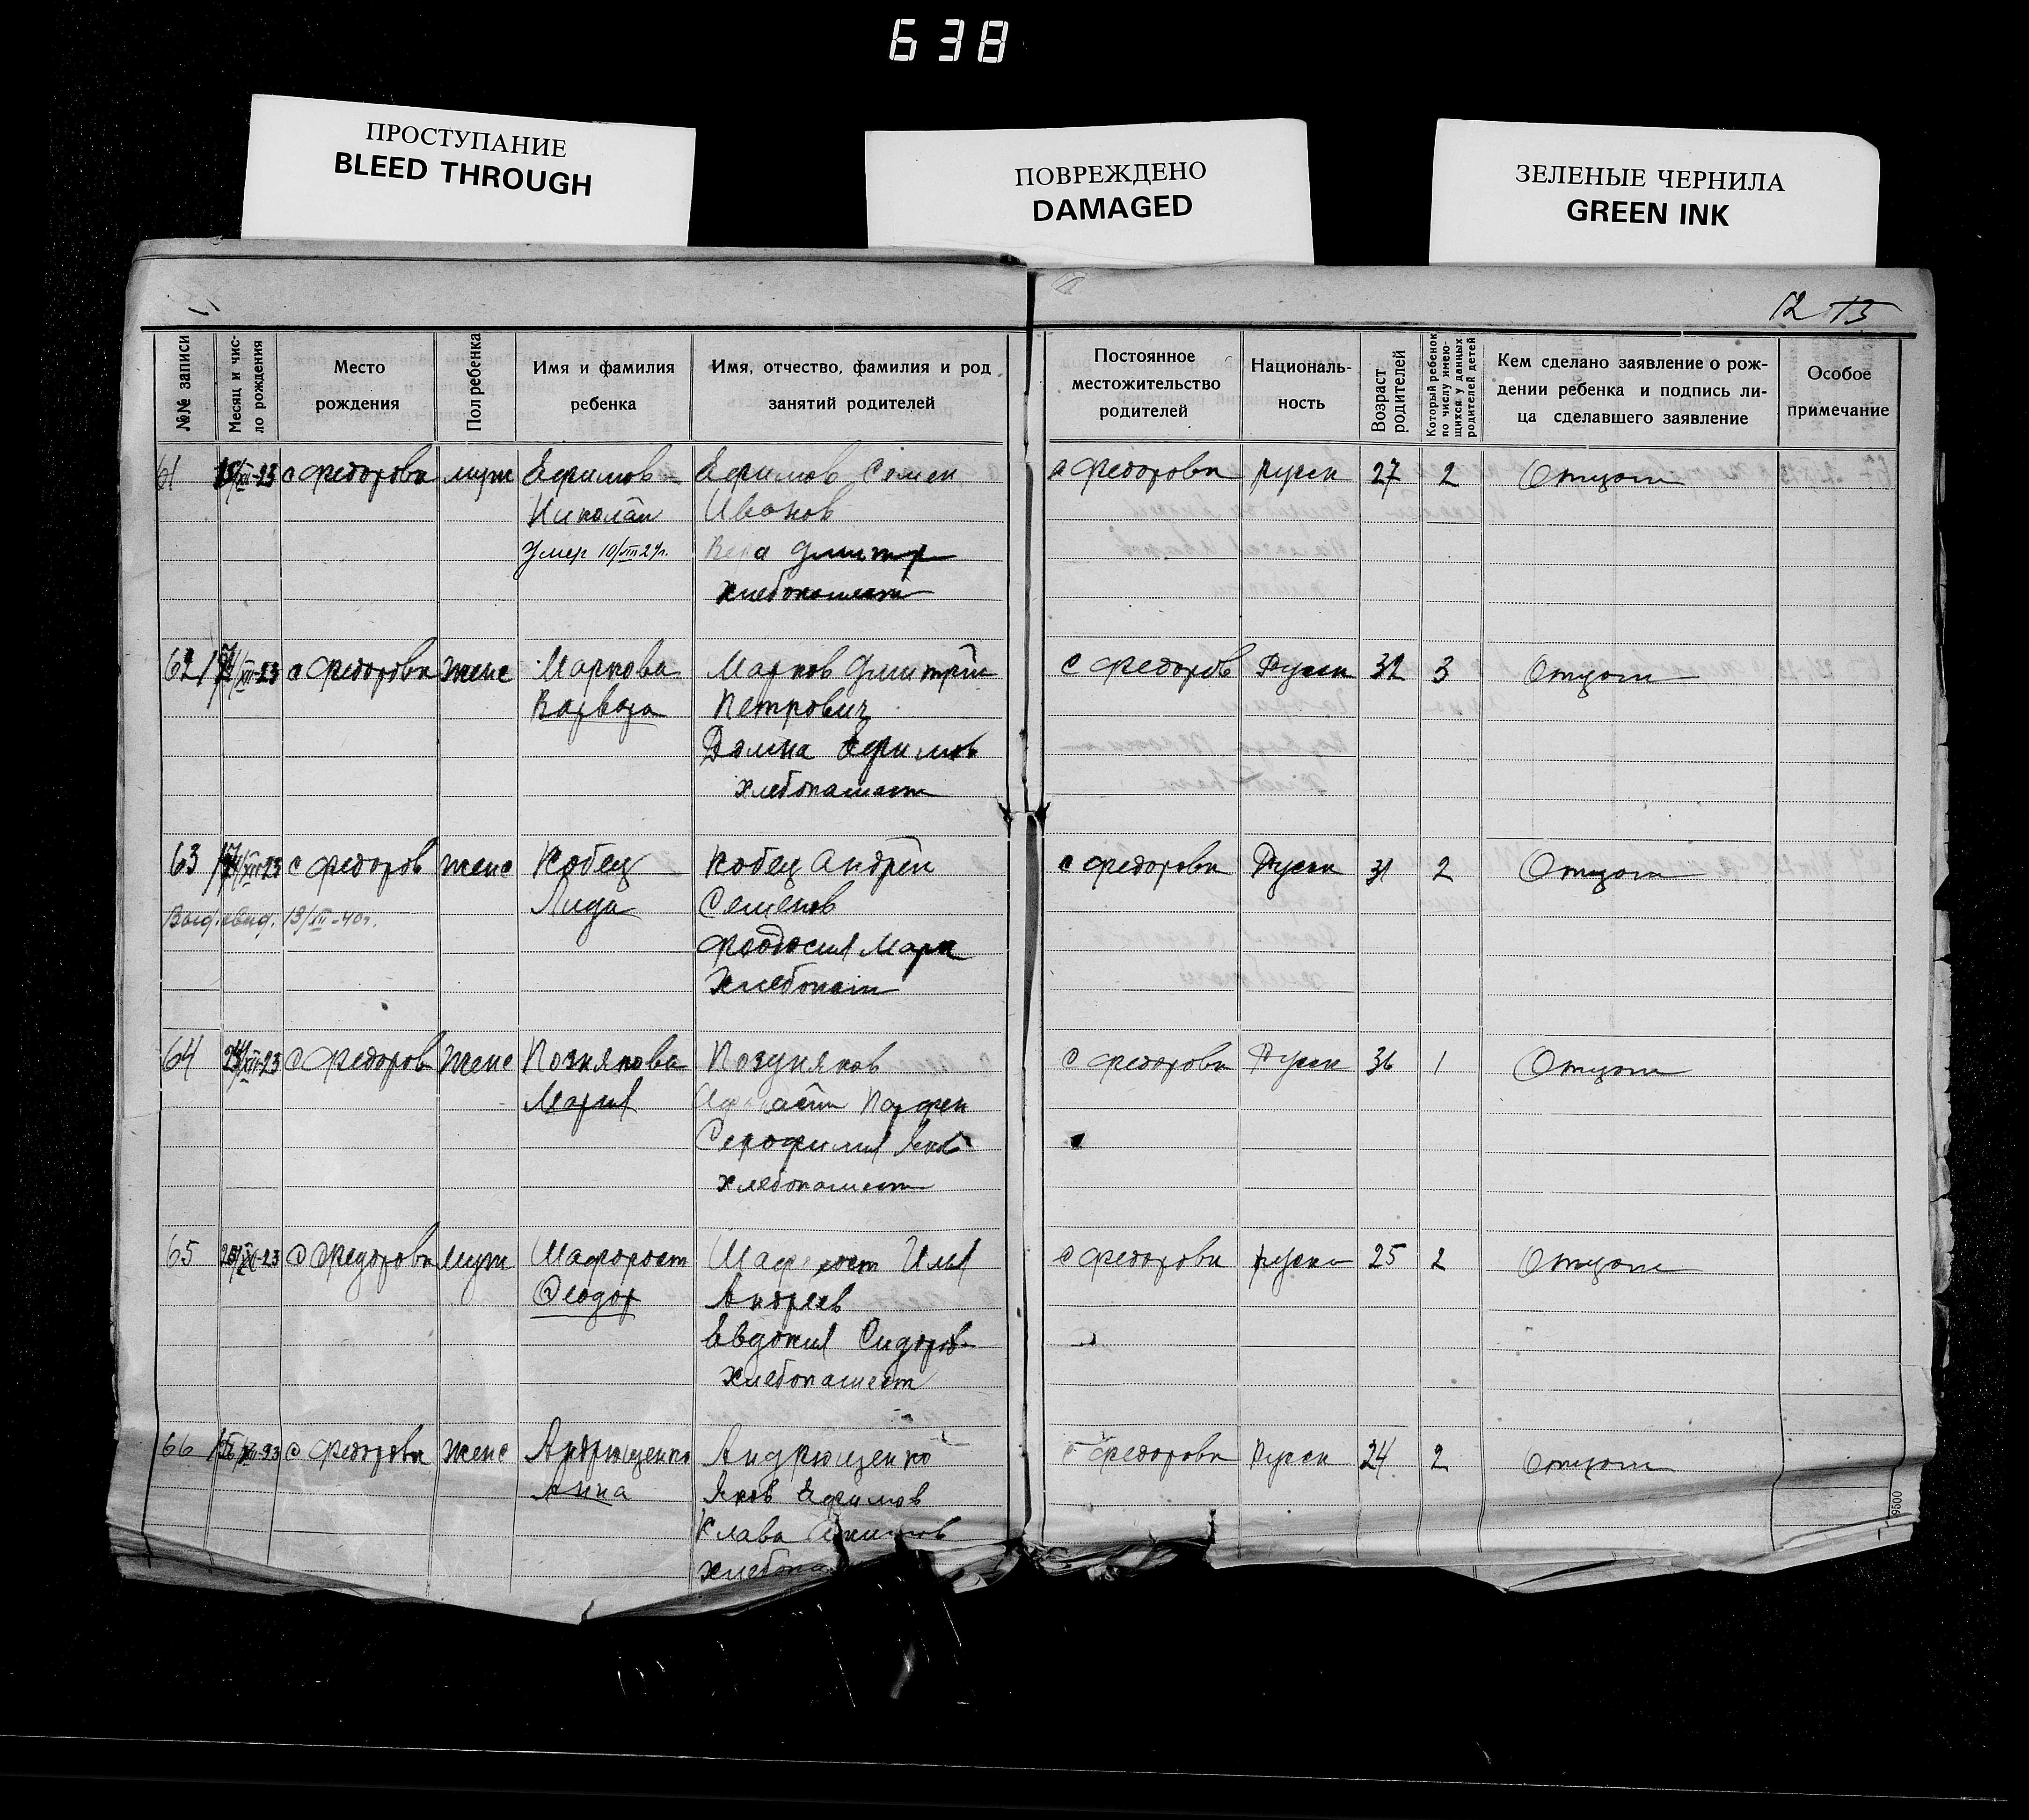 638
ПРОСТУПАНИЕ
BLEED THROUGH
ПОВРЕЖДЕНО
DAMAGED
ЗЕЛЕНЫЕ ЧЕРНИЛА
GREEN INK
12 13
№№ записи
Месяц и чис-
ло рождения
Место
рождения
Пол ребенка
Имя и фамилия
ребенка
Имя, отчество, фамилия и род
занятий родителей
Постоянное
местожительство
родителей
Националь-
ность
Возраст
родителей
Который ребенок
по числу имею-
щихся у данных
родителей детей
Кем сделано заявление о рож-
дении ребенка и подпись ли-
ца сделавшего заявление
Особое
примечание
61 XII-23 с Федоровка муж Ефимов Ефимов Семен с Федоровка русск 27 2 Отцом
Николай Иванов
Умер 10/III 24г. Дмитр
хлебопашест
62 XII-23 с Федоровка женс Маркова Марков Дмитрий с Федоров Русск 32 3 Отцом
Варвара Петрович
Домна Ефимов
хлебопашест
63 XII-23 с Федоров женс Кобец Кобец Андрей с Федоровка Русск 31 2 Отцом
Выд. свид. 13/III-40г. Лида Семенов
Феодосия Марк
Хлебопаш
64 XII-23 с Федоров женс Познякова Поздняков с Федоровка Русск 36 1 Отцом
Мария Парфен
Серафимия Яков
хлебопашест
65 23 с Федоровка муж Шафорост Шафорост Илья с Федоровка русск 25 2 Отцом
Феодор Андреев
Евдокия Сидоров
хлебопашест
66 XII-23 с Федоровка женс Андрющенко Андрющенко с Федоровка Русск 24 2 Отцом
Анна Яков Ефимов
Клава
хлебопа
9500